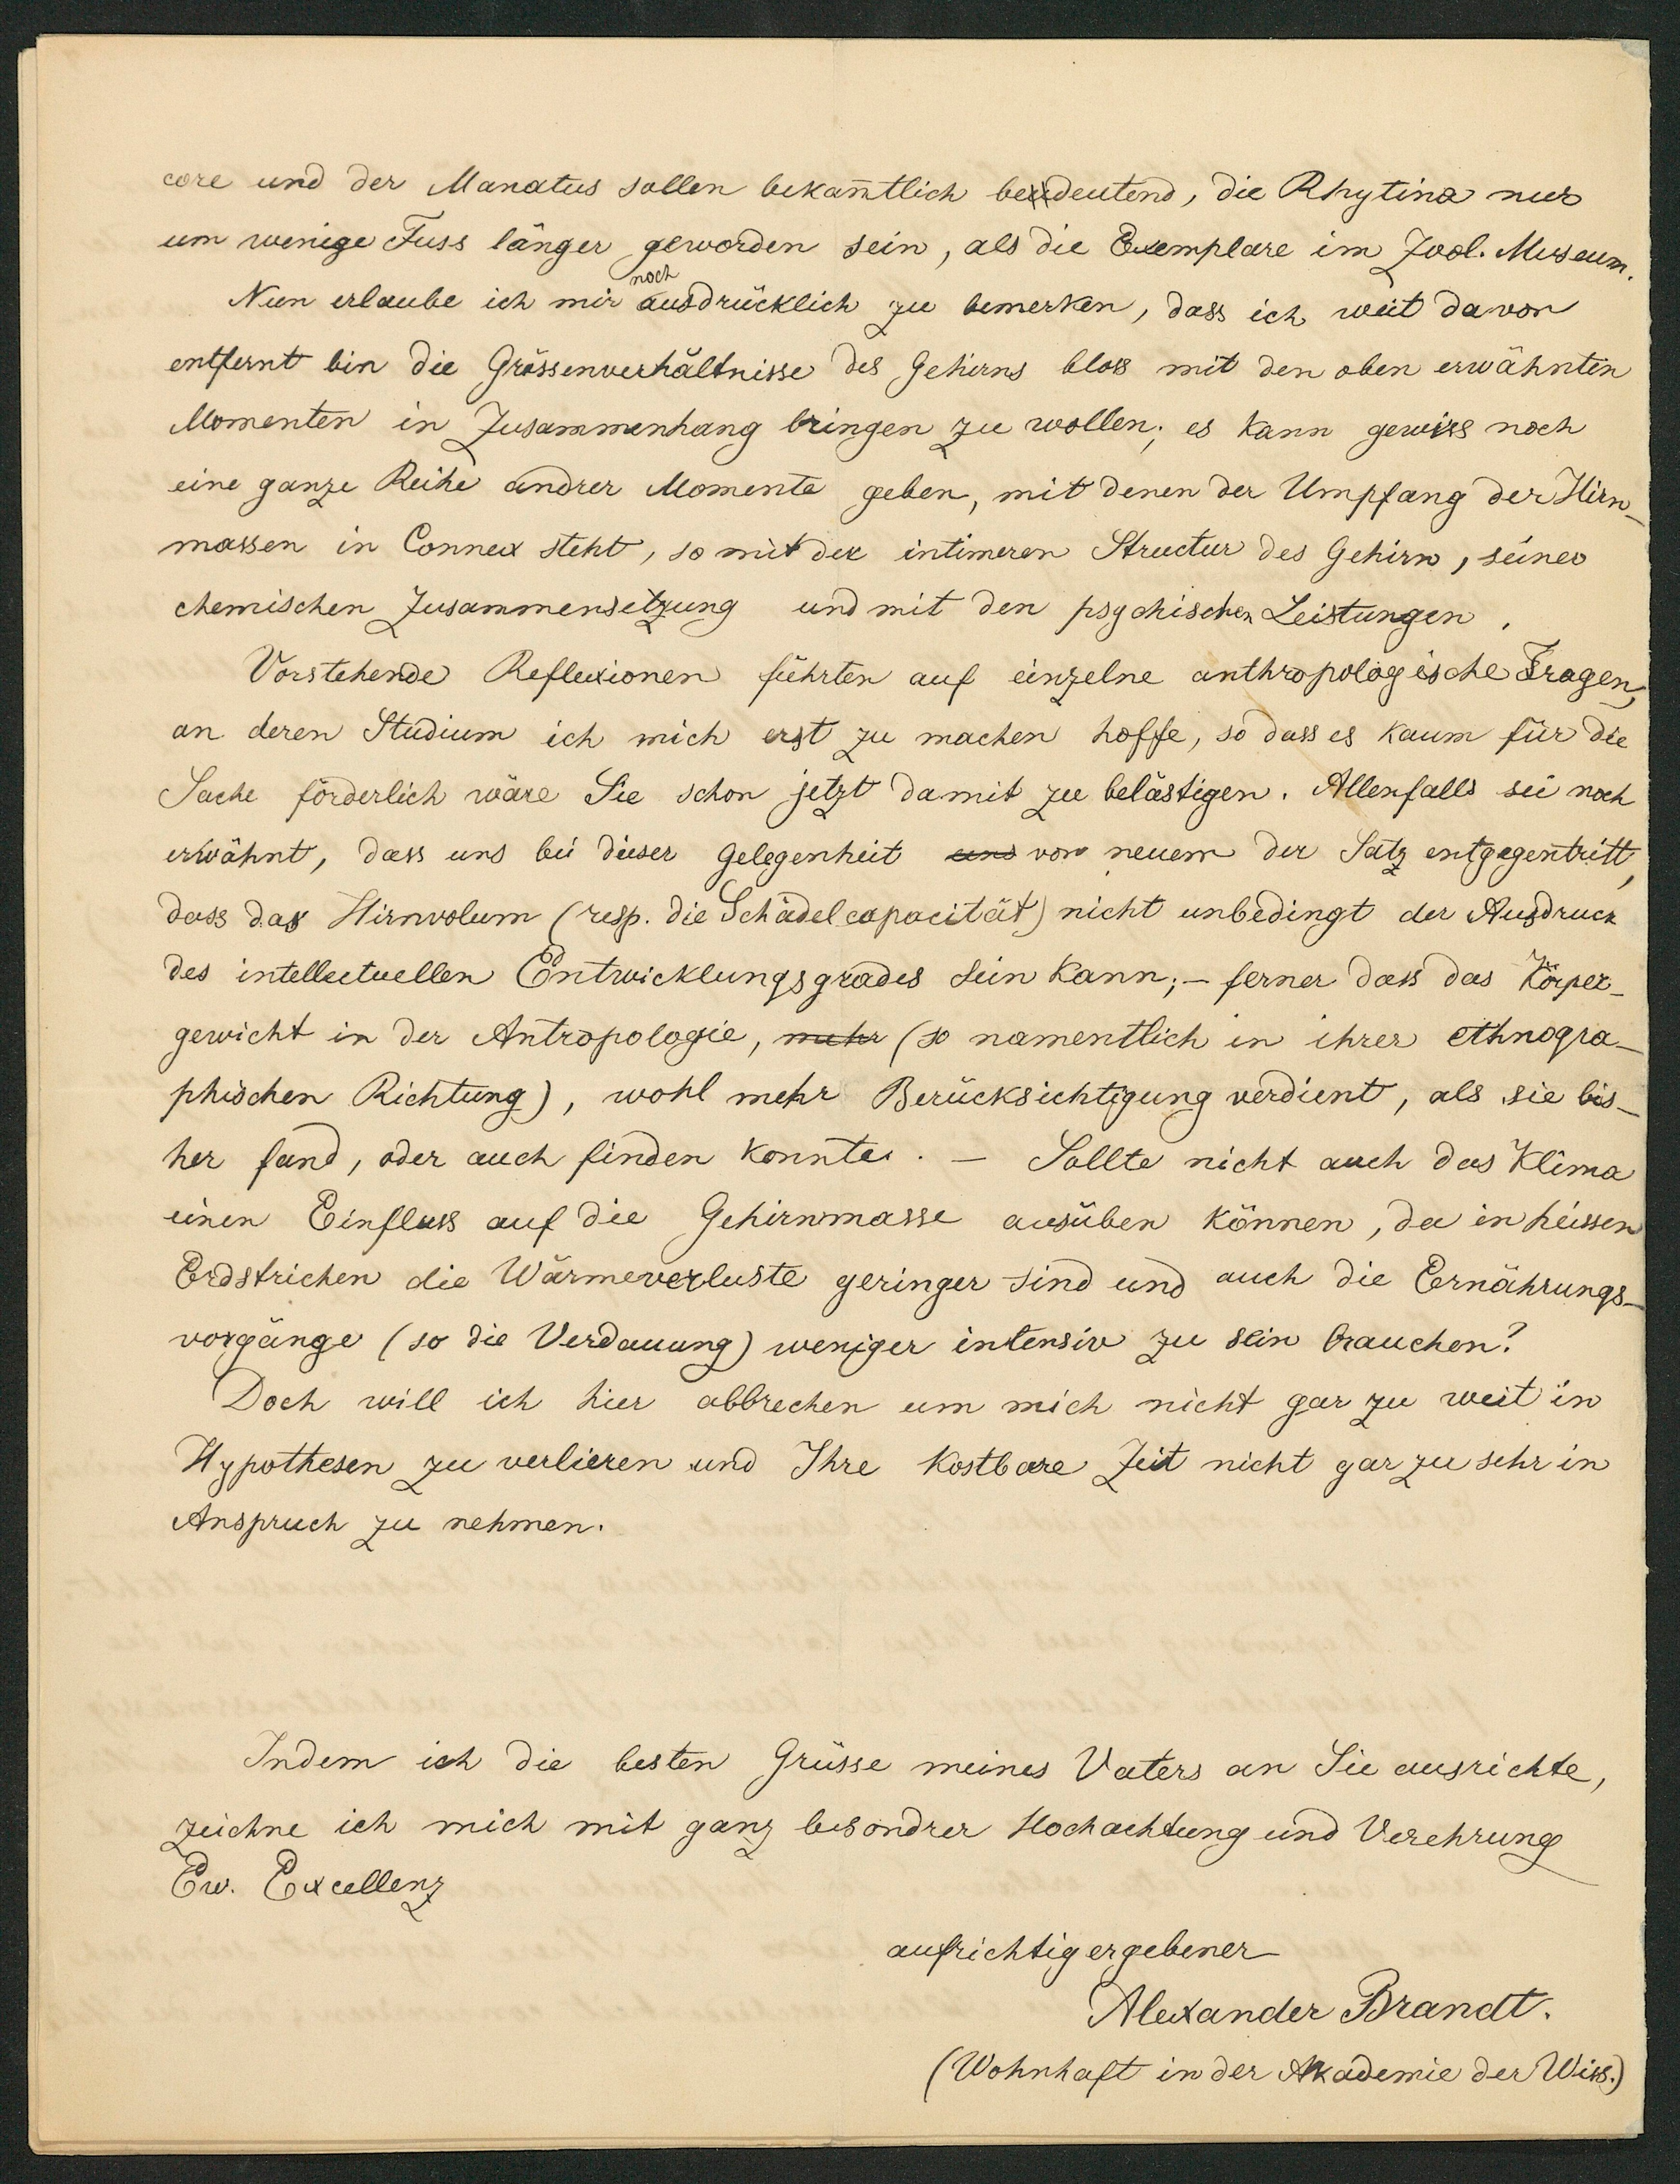 core und der Manatus sollen bekan̄tlich bedeutend, die Rhytina nur
um wenige Fuss länger geworden sein, als die Exemplare im Zool. Museum.
Nun erlaube ich mir noch ausdrücklich zu bemerken, dass ich weit davon
entfernt bin die Grössenverhältnisse des Gehirns bloss mit den oben erwähnten
Momenten in Zusammenhang bringen zu wollen; es kann gewiss noch
eine ganze Reihe andrer Momente geben, mit denen der Umpfang der Hirn-
massen in Connex steht, so mit der intimeren Structur des Gehirn, seiner
chemischen Zusammensetzung und mit den psychischen Leistungen.
Vorstehende Reflexionen führten auf einzelne anthropologische Fragen,
an deren Studium ich mich erst zu machen hoffe, so dass es kaum für die
Sache förderlich wäre Sie schon jetzt damit zu belästigen. Allenfalls sei noch
erwähnt, dass uns bei dieser Gelegenheit uns von neuem der Satz entgegentritt,
dass das Hirnvolum (resp. die Schädelcapacität) nicht unbedingt der Ausdruck
des intellectuellen Entwicklungsgrades sein kann; – ferner dass das Körper-
gewicht in der Antropologie, mehr (so namentlich in ihrer ethnogra-
phischen Richtung), wohl mehr Berücksichtigung verdient, als sie bis-
her fand, oder auch finden konnte. – Sollte nicht auch das Klima
einen Einfluss auf die Gehirnmasse ausüben können, da in heissen
Erdstrichen die Wärmeverluste geringer sind und auch die Ernährungs-
vorgänge (so die Verdauung) weniger intensiv zu sein brauchen?
Doch will ich hier abbrechen um mich nicht gar zu weit in
Hypothesen zu verlieren und Ihre kostbare Zeit nicht gar zu sehr in
Anspruch zu nehmen.
Indem ich die besten Grüsse meines Vaters an Sie ausrichte,
zeichne ich mich mit ganz besondrer Hochachtung und Verehrung
Ew. Excellenz
aufrichtig ergebener
Alexander Brandt.
(Wohnhaft in der Akademie der Wiss.)